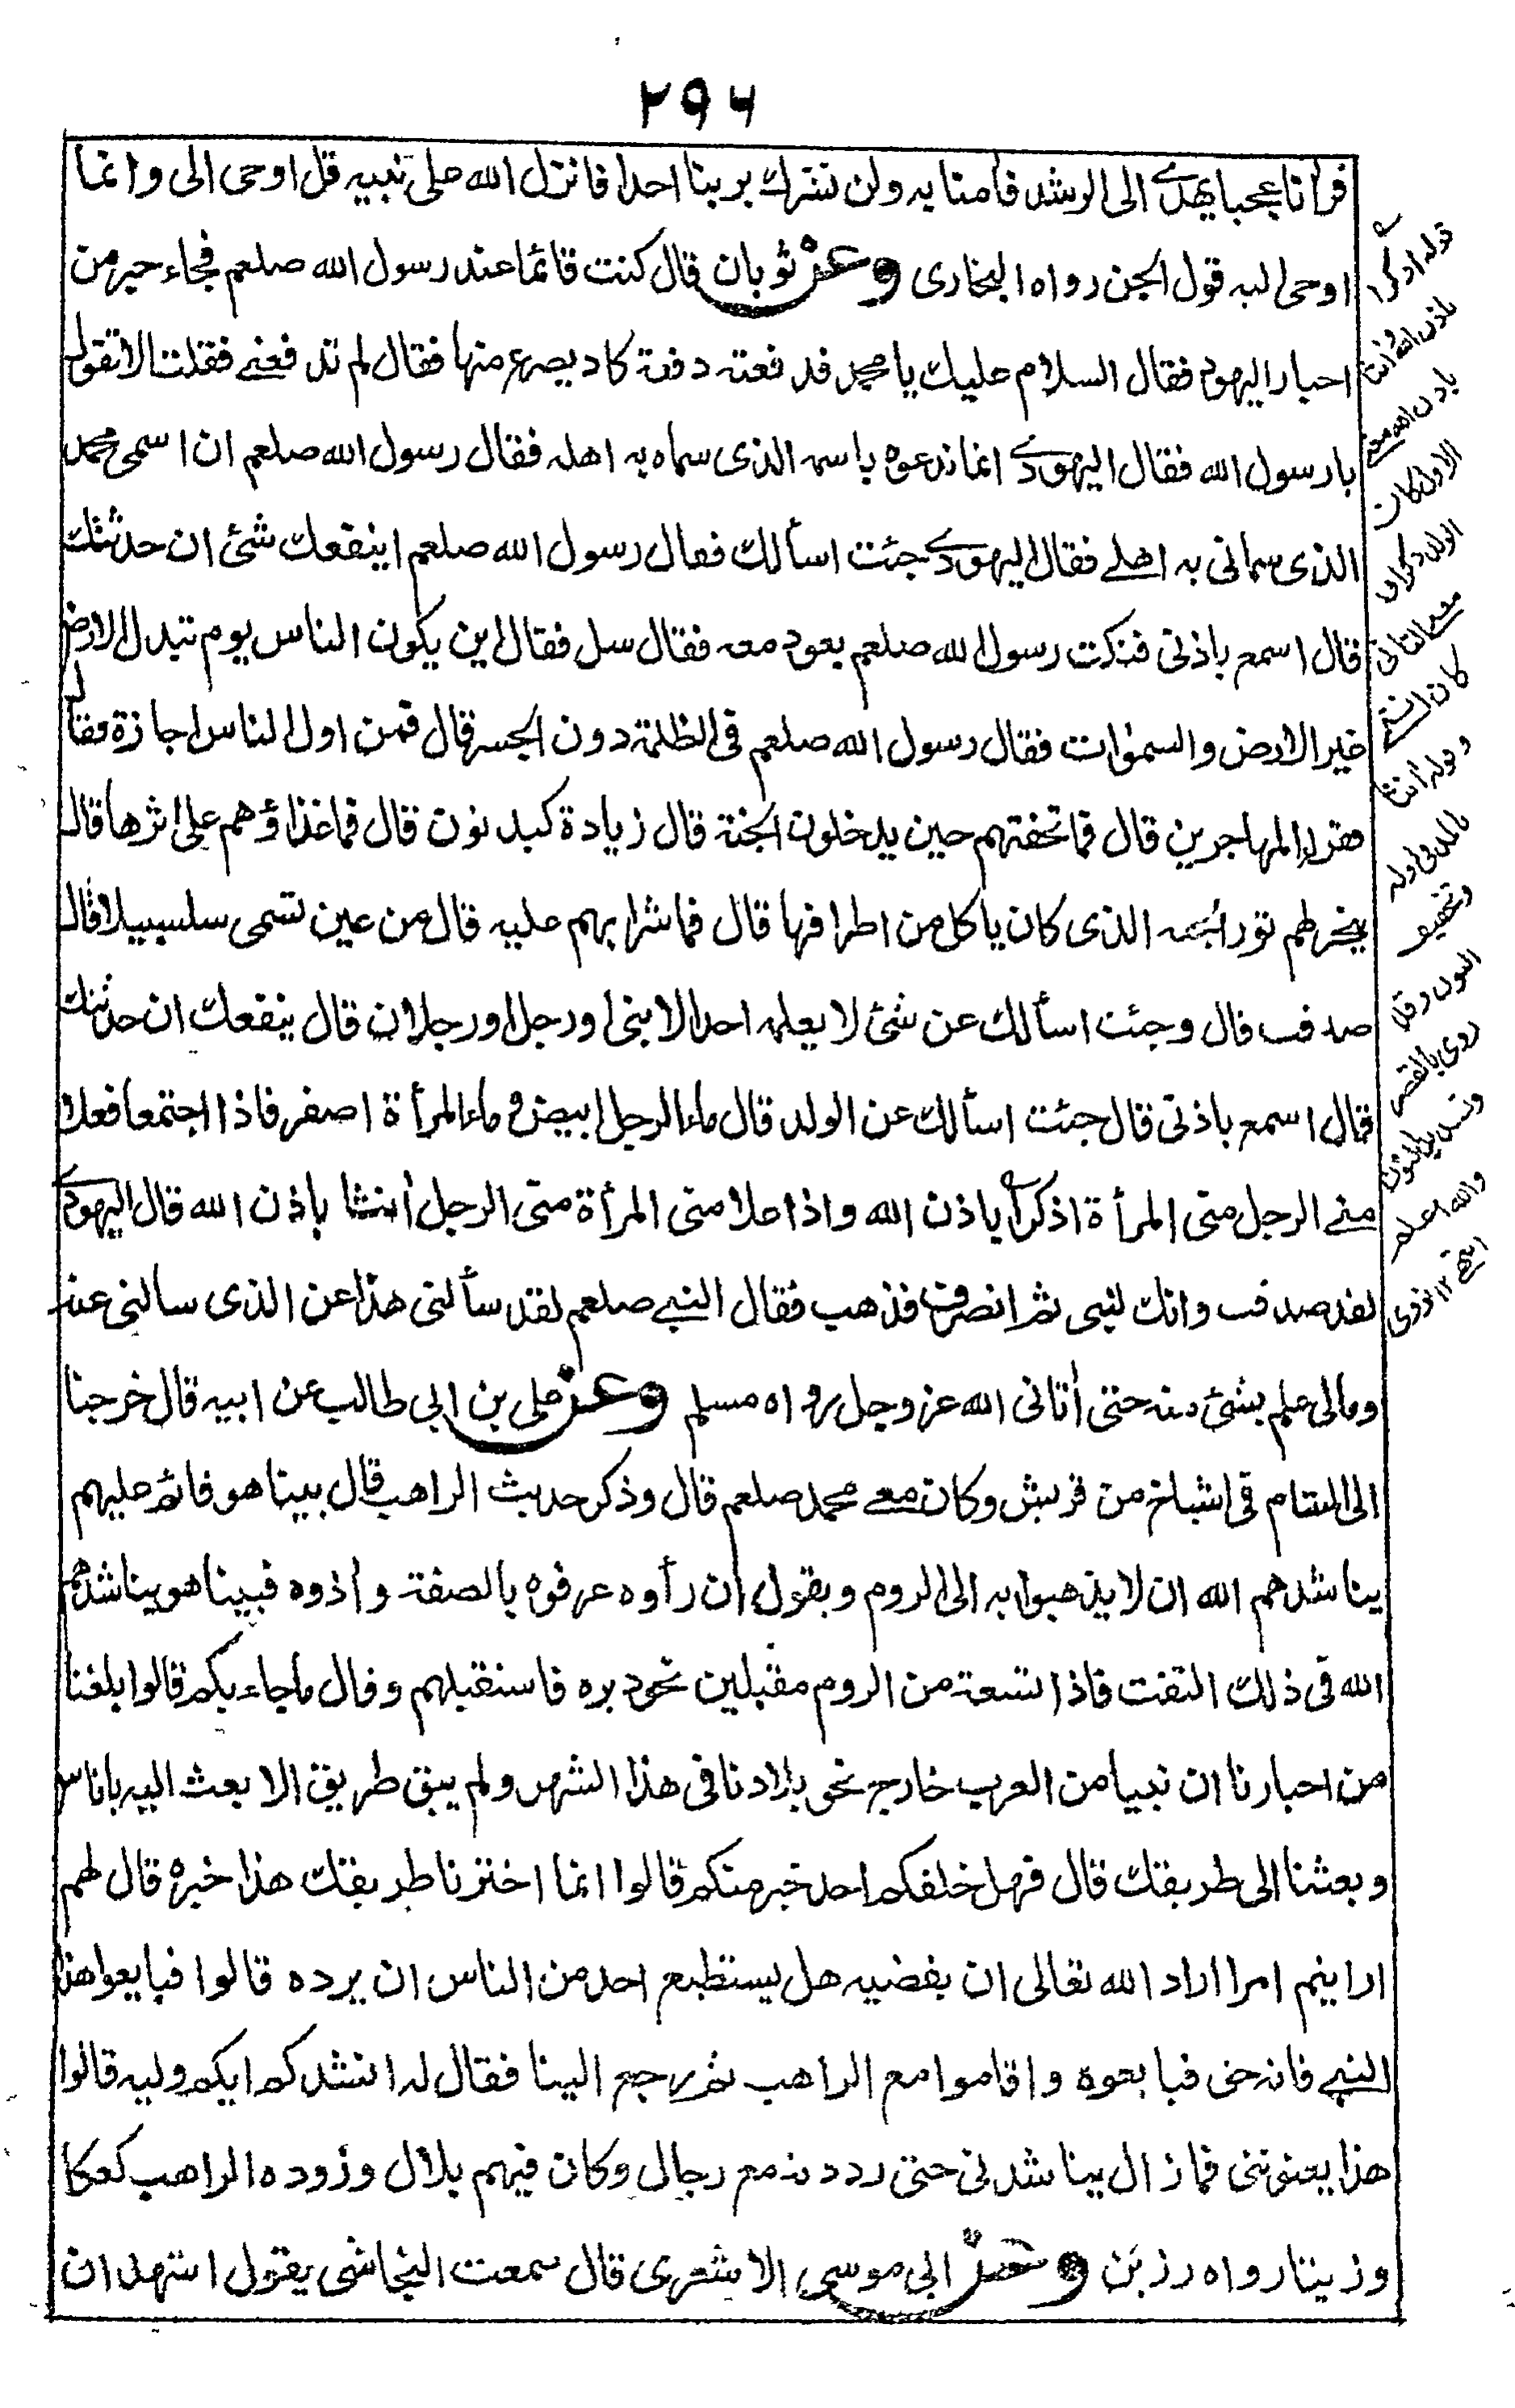 ٢٩٦
قرانا عجبا يهدي الى الرشد فامنا به ولن نشرك بربنا احدا فانزل الله على نبيه قل اوحى الى وانما
اوحى اليه قول الجن رواه البخارى وعن ثوبان قال كنت قائما عند رسول الله صلعم فجاء حبر من
احبار اليهود فقال السلام عليك يا محمد فدفعته دفعة كاد يصرع منها فقال لم تدفعنے فقلت الا تقول
يا رسول الله فقال اليهودے انما ندعوه باسمه الذى سماه به اهله فقال رسول الله صلعم ان اسمى محمد
الذى سمانى به اهلے فقال اليهودے جئت اسألك فقال رسول الله صلعم اينفعك شئ ان حدثتك
قال اسمع باذنى فنكت رسول الله صلعم بعود معه فقال سل فقال اين يكون الناس يوم تبدل الارض
غير الارض والسمٰوات فقال رسول الله صلعم فى الظلمة دون الجسر قال فمن اول الناس اجازة فقال
فقراء المهاجرين قال فما تحفتهم حين يدخلون الجنة قال زيادة كبد نون قال فما غذاؤهم على اثرها قال
ينحر لهم ثور الجنة الذى كان ياكل من اطرافها قال فما شرابهم عليه قال من عين تسمى سلسبيلا قال
صدقت قال وجئت اسألك عن شئ لا يعلمه احد الا نبى او رجل او رجلان قال ينفعك ان حدثتك
قال اسمع باذنى قال جئت اسألك عن الولد قال ماء الرجل ابيض و ماء المرأة اصفر فاذا اجتمعا فعلا
منے الرجل منى المرأة اذكرا باذن الله واذا علا منى المرأة منى الرجل أنثا باذن الله قال اليهودے
لقد صدقت وانك لنبى ثم انصرف فذهب فقال النبے صلعم لقد سألنى هذا عن الذى سالنى عنه
ومالى علم بشئ منه حتى أتانى الله عز وجل رواه مسلم وعن على بن ابى طالب عن ابيه قال خرجنا
الى الشام فى اشياخ من قريش وكان معے محمد صلعم قال وذكر حديث الراهب قال بينا هو قائم عليهم
يناشدهم الله ان لا يذهبوا به الى الروم ويقول ان رأوه عرفوه بالصفة واذوه فبينا هو يناشدهم
الله فى ذلك التفت فاذا تسعة من الروم مقبلين نحو ديره فاستقبلهم وقال ما جاء بكم قالوا بلغنا
من احبارنا ان نبيا من العرب خارج نحو بلادنا فى هذا الشهر ولم يبق طريق الا بعث اليه باناس
وبعثنا الى طريقك قال فهل خلفكم احد خير منكم قالوا انما اخترنا طريقك هذا خيره قال لهم
ارايتم امرا اراد الله تعالى ان يقضيه هل يستطيع احد من الناس ان يرده قالوا فبايعوا هذا
النبے فانه حق فبايعوه واقاموا مع الراهب ثم رجع الينا فقال لهم انشدكم ايكم وليه قالوا
هذا يعنوننى فما زال يناشدنى حتى رددته مع رجال وكان فيهم بلال وزوده الراهب كعكا
وزيتا رواه رزين وعن ابى موسى الاشعرى قال سمعت النجاشى يقول اشهد ان
قوله اذكرا
باذن الله وانثا
باذن الله معنے
الاول كان
الولد ذكرا و
معنے الثانى
كان انثے
وقوله انثا
بالمد فى اوله
وتخفيف
النون وقد
روى بالقصر
وتشديد النون
والله اعلم
انتهے ١٢ نووى